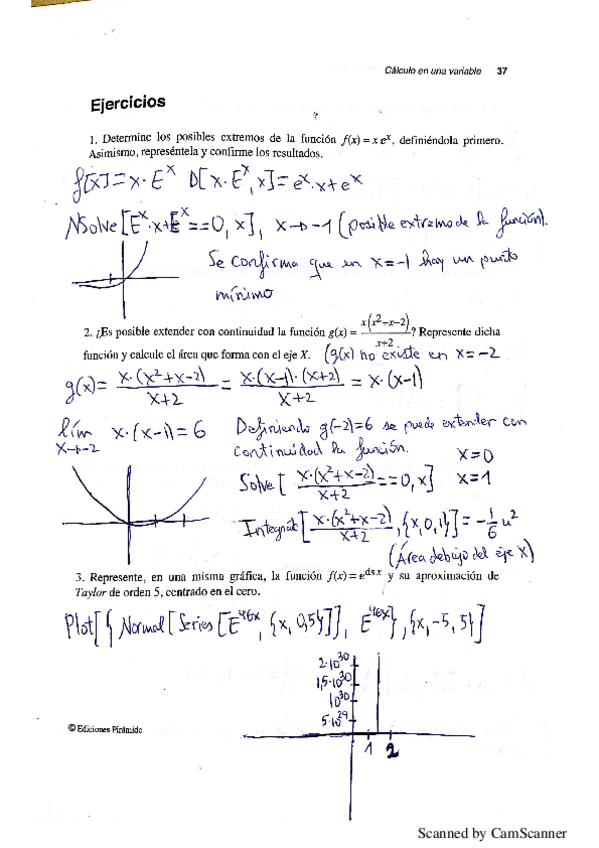 Cálculo en una variable 37
Ejercicios
1. Determine los posibles extremos de la función f(x) = x eˣ, definiéndola primero.
Asimismo, represéntela y confirme los resultados.
f[x] = x · E^x D[x · E^x, x] = e^x · x + e^x
NSolve[E^x · x + E^x == 0, x], x → -1 (posible extremo de la función).
Se confirma que en x=-1 hay un punto
mínimo
2. ¿Es posible extender con continuidad la función g(x) = x(x²+x−2)/x+2? Represente dicha
función y calcule el área que forma con el eje X. (g(x) no existe en x=-2
g(x) = x·(x²+x-2)/x+2 = x·(x-1)·(x+2)/x+2 = x·(x-1)
lím x→-2 x·(x-1) = 6 Definiendo g(-2)=6 se puede extender con
continuidad la función.
x=0
Solve[ x·(x²+x-2)/x+2 == 0, x] x=1
Integrate[ x·(x²+x-2)/x+2, {x,0,1}] = -1/6 u²
(Área debajo del eje X)
3. Represente, en una misma gráfica, la función f(x) = e^ds x y su aproximación de
Taylor de orden 5, centrado en el cero.
Plot[{Normal[Series[E^46x, {x,0,5}]], E^46x}, {x,-5,5}]
2·10³⁰
1,5·10³⁰
10³⁰
5·10²⁹
1 2
© Ediciones Pirámide
Scanned by CamScanner